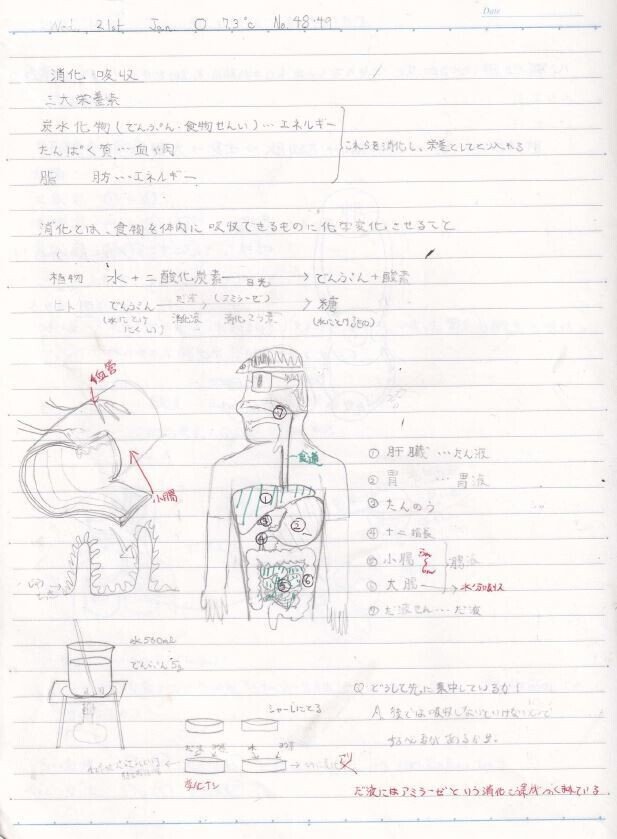 Date
Wed. 21st Jan. 7.3℃ No.48.49
消化、吸収
三大栄養素
炭水化物(でんぷん・食物せんい)…エネルギー
たんぱく質…血や肉
これらを消化し、栄養としてとり入れる
脂肪…エネルギー
消化とは、食物を体内に吸収できるものに化学変化させること
植物 水+二酸化炭素 日光 でんぷん+酸素
ヒト でんぷん だ液(アミラーゼ) 糖
(水にとけにくい) 消化液 消化こう素 (水にとけるもの)
血管
小腸
食道
① ② ③ ④ ⑤ ⑥ ⑦
① 肝臓…たん液
② 胃…胃液
③ たんのう
④ 十二指長
⑤ 小腸 5m 6m 腸液
⑥ 大腸 水分吸収
⑦ だ液せん…だ液
水500ml
でんぷん5g
シャーレにとる
だ液
水
Q. どうして先に集中しているか?
A. 後では吸収しないといけないので
だ液にはアミラーゼという消化こう素がふくまれている